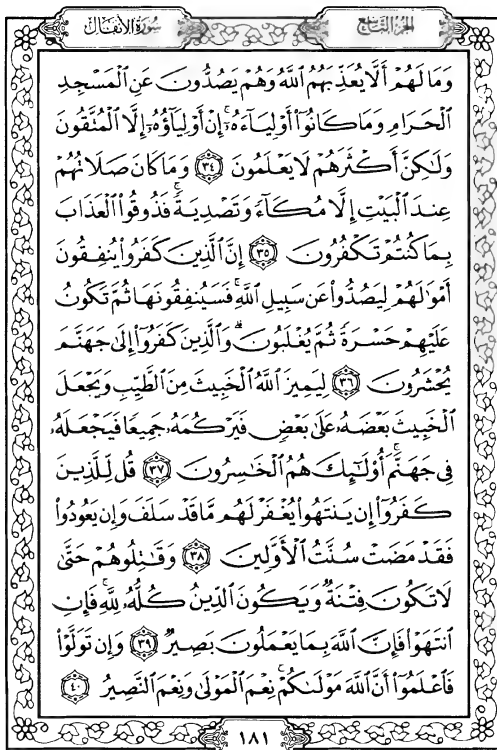 سُورَةُ الأَنفَال
الجُزءُ التَّاسِعُ
وَمَا لَهُمْ أَلَّا يُعَذِّبَهُمُ ٱللَّهُ وَهُمْ يَصُدُّونَ عَنِ ٱلْمَسْجِدِ
ٱلْحَرَامِ وَمَا كَانُوٓا۟ أَوْلِيَآءَهُۥٓ ۚ إِنْ أَوْلِيَآؤُهُۥٓ إِلَّا ٱلْمُتَّقُونَ
وَلَٰكِنَّ أَكْثَرَهُمْ لَا يَعْلَمُونَ ٣٤ وَمَا كَانَ صَلَاتُهُمْ
عِندَ ٱلْبَيْتِ إِلَّا مُكَآءً وَتَصْدِيَةً ۚ فَذُوقُوا۟ ٱلْعَذَابَ
بِمَا كُنتُمْ تَكْفُرُونَ ٣٥ إِنَّ ٱلَّذِينَ كَفَرُوا۟ يُنفِقُونَ
أَمْوَٰلَهُمْ لِيَصُدُّوا۟ عَن سَبِيلِ ٱللَّهِ ۚ فَسَيُنفِقُونَهَا ثُمَّ تَكُونُ
عَلَيْهِمْ حَسْرَةً ثُمَّ يُغْلَبُونَ ۗ وَٱلَّذِينَ كَفَرُوٓا۟ إِلَىٰ جَهَنَّمَ
يُحْشَرُونَ ٣٦ لِيَمِيزَ ٱللَّهُ ٱلْخَبِيثَ مِنَ ٱلطَّيِّبِ وَيَجْعَلَ
ٱلْخَبِيثَ بَعْضَهُۥ عَلَىٰ بَعْضٍ فَيَرْكُمَهُۥ جَمِيعًا فَيَجْعَلَهُۥ
فِى جَهَنَّمَ ۚ أُو۟لَٰٓئِكَ هُمُ ٱلْخَٰسِرُونَ ٣٧ قُل لِّلَّذِينَ
كَفَرُوٓا۟ إِن يَنتَهُوا۟ يُغْفَرْ لَهُم مَّا قَدْ سَلَفَ وَإِن يَعُودُوا۟
فَقَدْ مَضَتْ سُنَّتُ ٱلْأَوَّلِينَ ٣٨ وَقَٰتِلُوهُمْ حَتَّىٰ
لَا تَكُونَ فِتْنَةٌ وَيَكُونَ ٱلدِّينُ كُلُّهُۥ لِلَّهِ ۚ فَإِنِ
ٱنتَهَوْا۟ فَإِنَّ ٱللَّهَ بِمَا يَعْمَلُونَ بَصِيرٌ ٣٩ وَإِن تَوَلَّوْا۟
فَٱعْلَمُوٓا۟ أَنَّ ٱللَّهَ مَوْلَىٰكُمْ ۚ نِعْمَ ٱلْمَوْلَىٰ وَنِعْمَ ٱلنَّصِيرُ ٤٠
١٨١